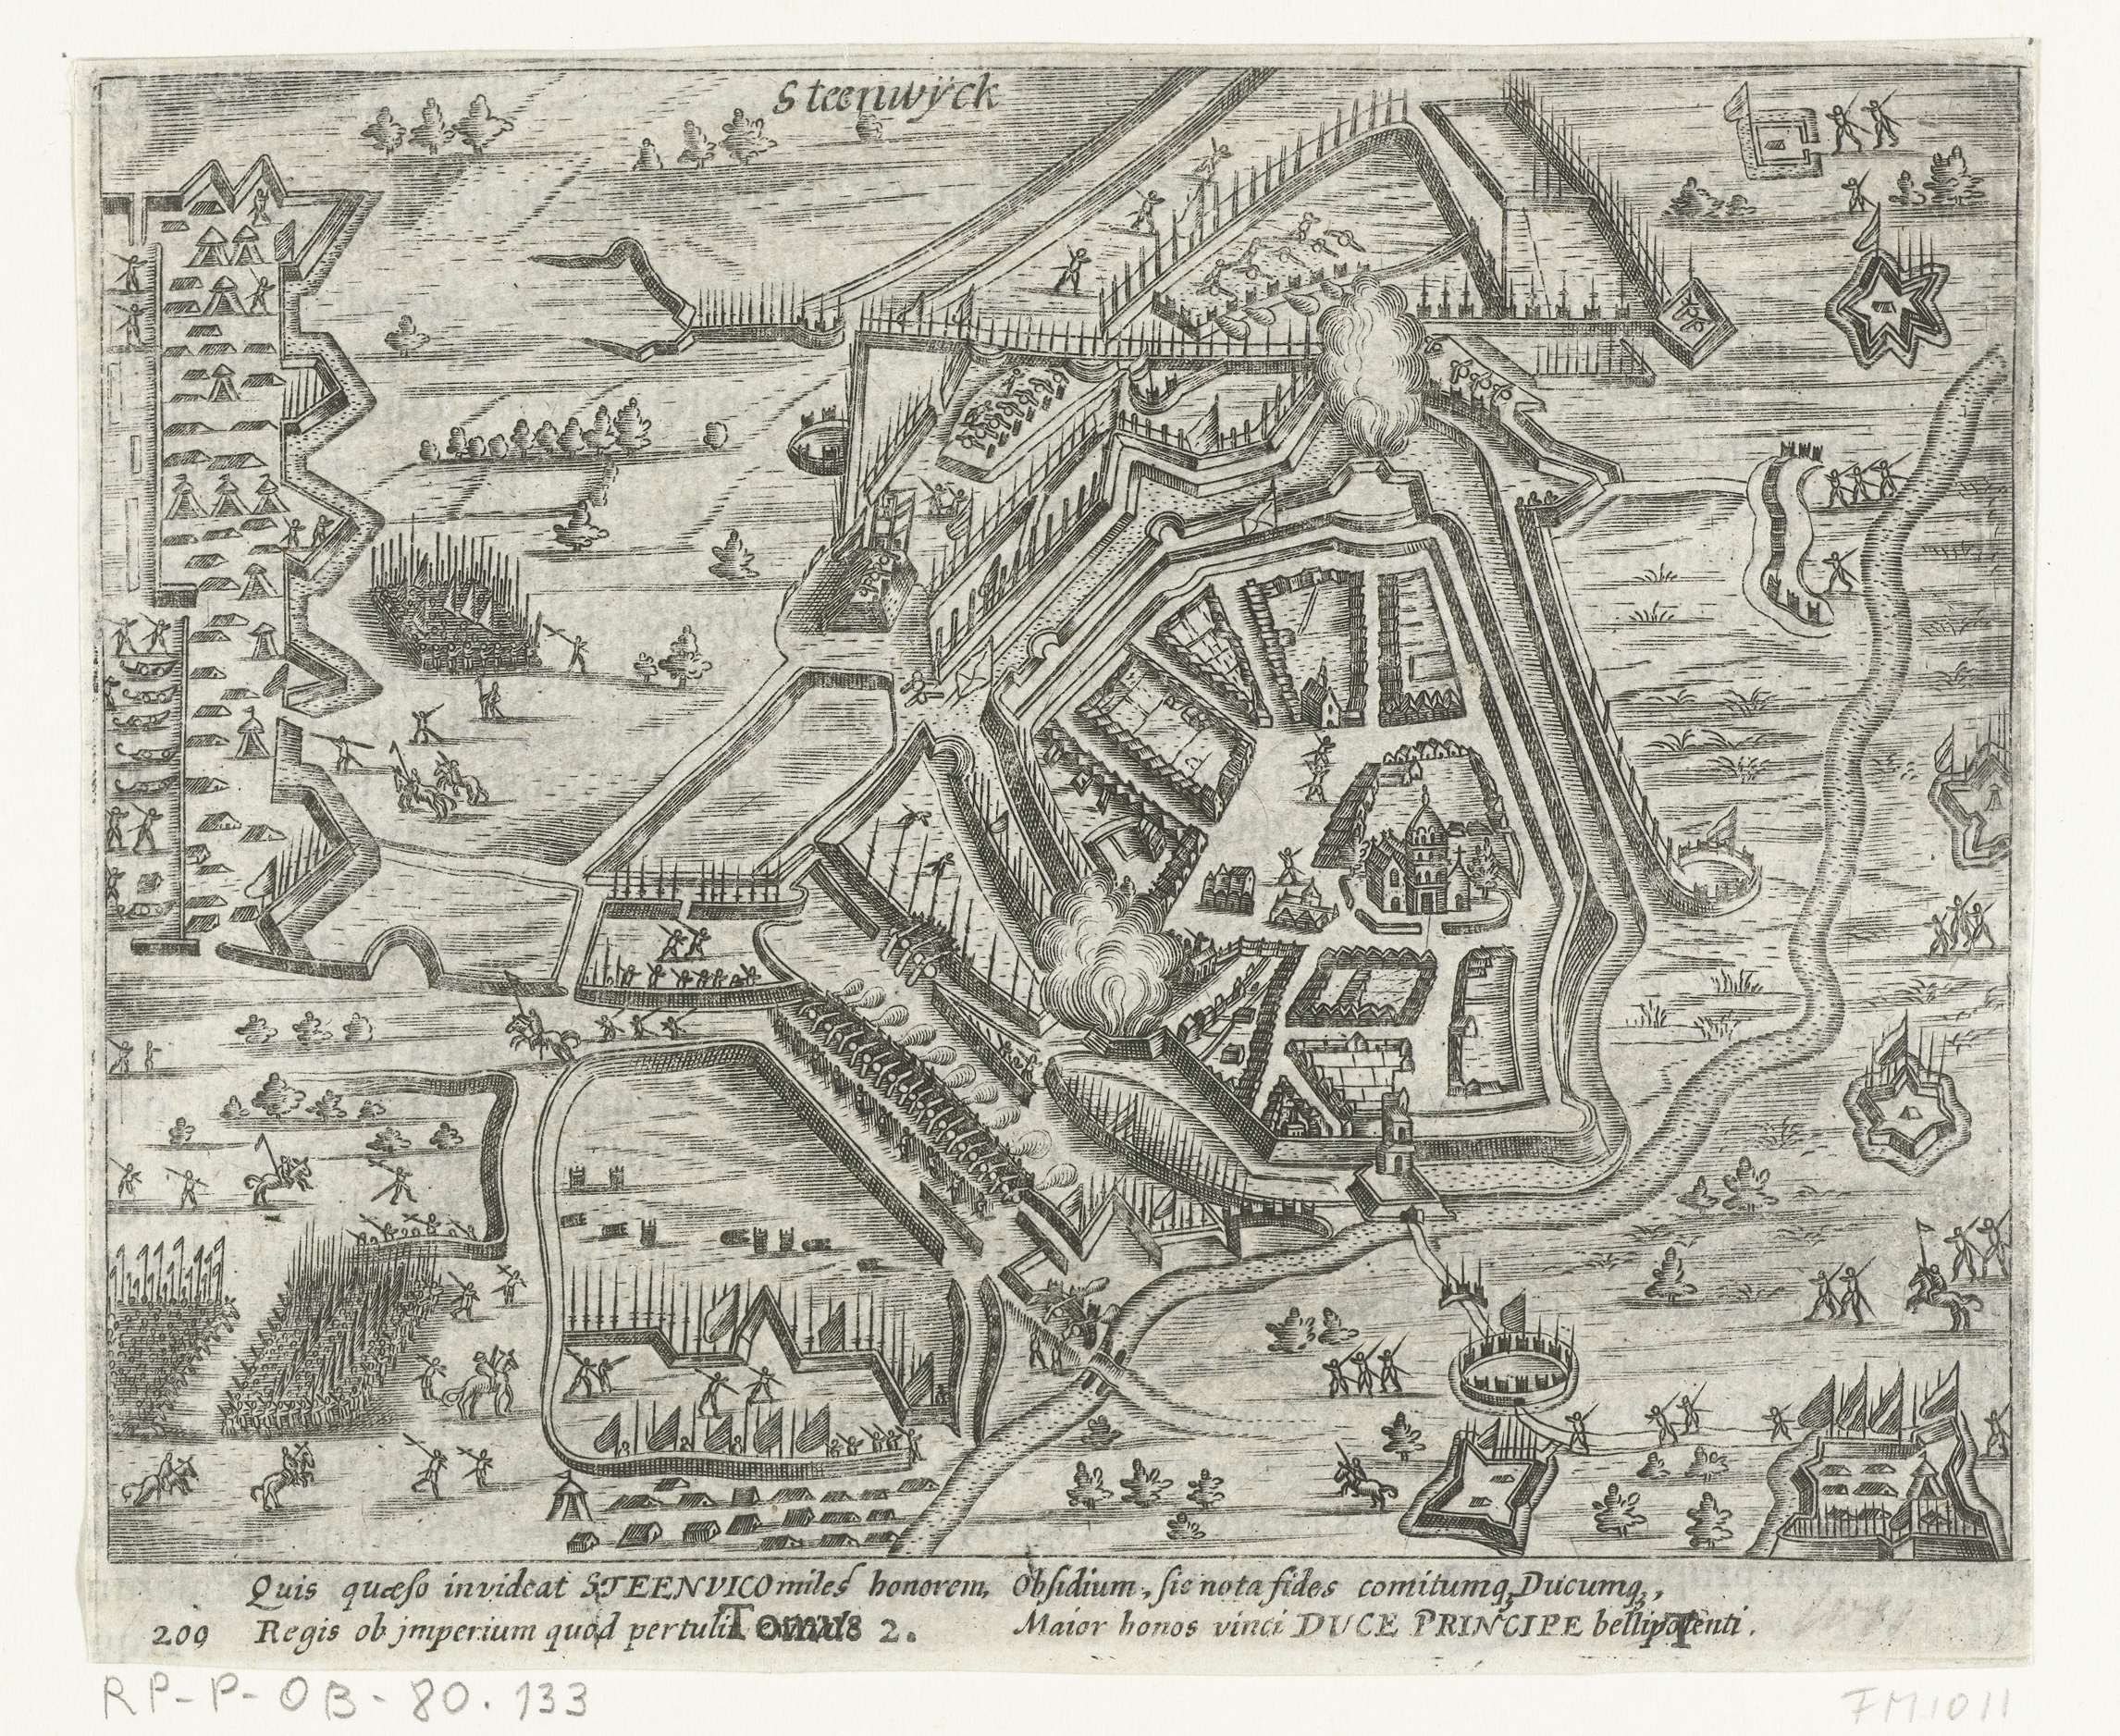 Steenwÿck
Quis quæso invideat STEENVICO miles honorem, Obsidium, sic nota fides comitumq₃ Ducumq₃,
209 Regis ob jmperium quod pertulit Tomus 2. Maior honos vinci DUCE PRINCIPE bellipotenti. T
RP-P-OB-80.133 FM1011